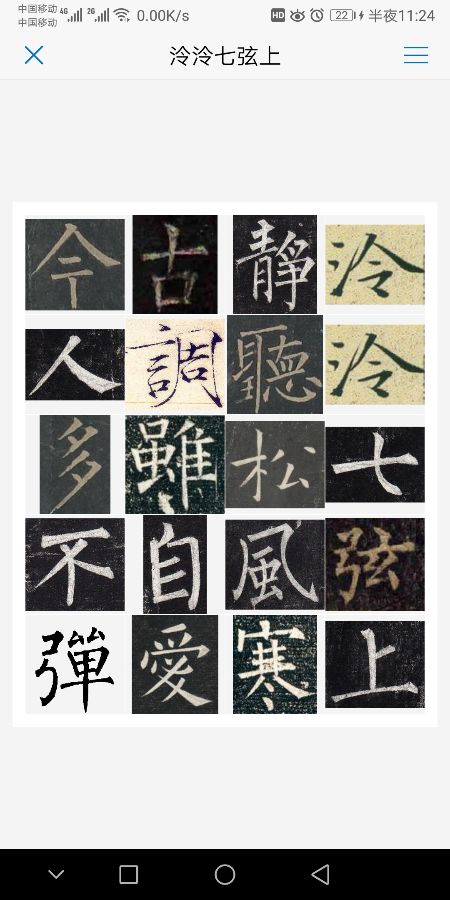 中国移动 4G 2G 0.00K/s HD 22 半夜11:24
中国移动
泠泠七弦上
泠泠七弦上
静聽松風寒
古調雖自愛
今人多不彈